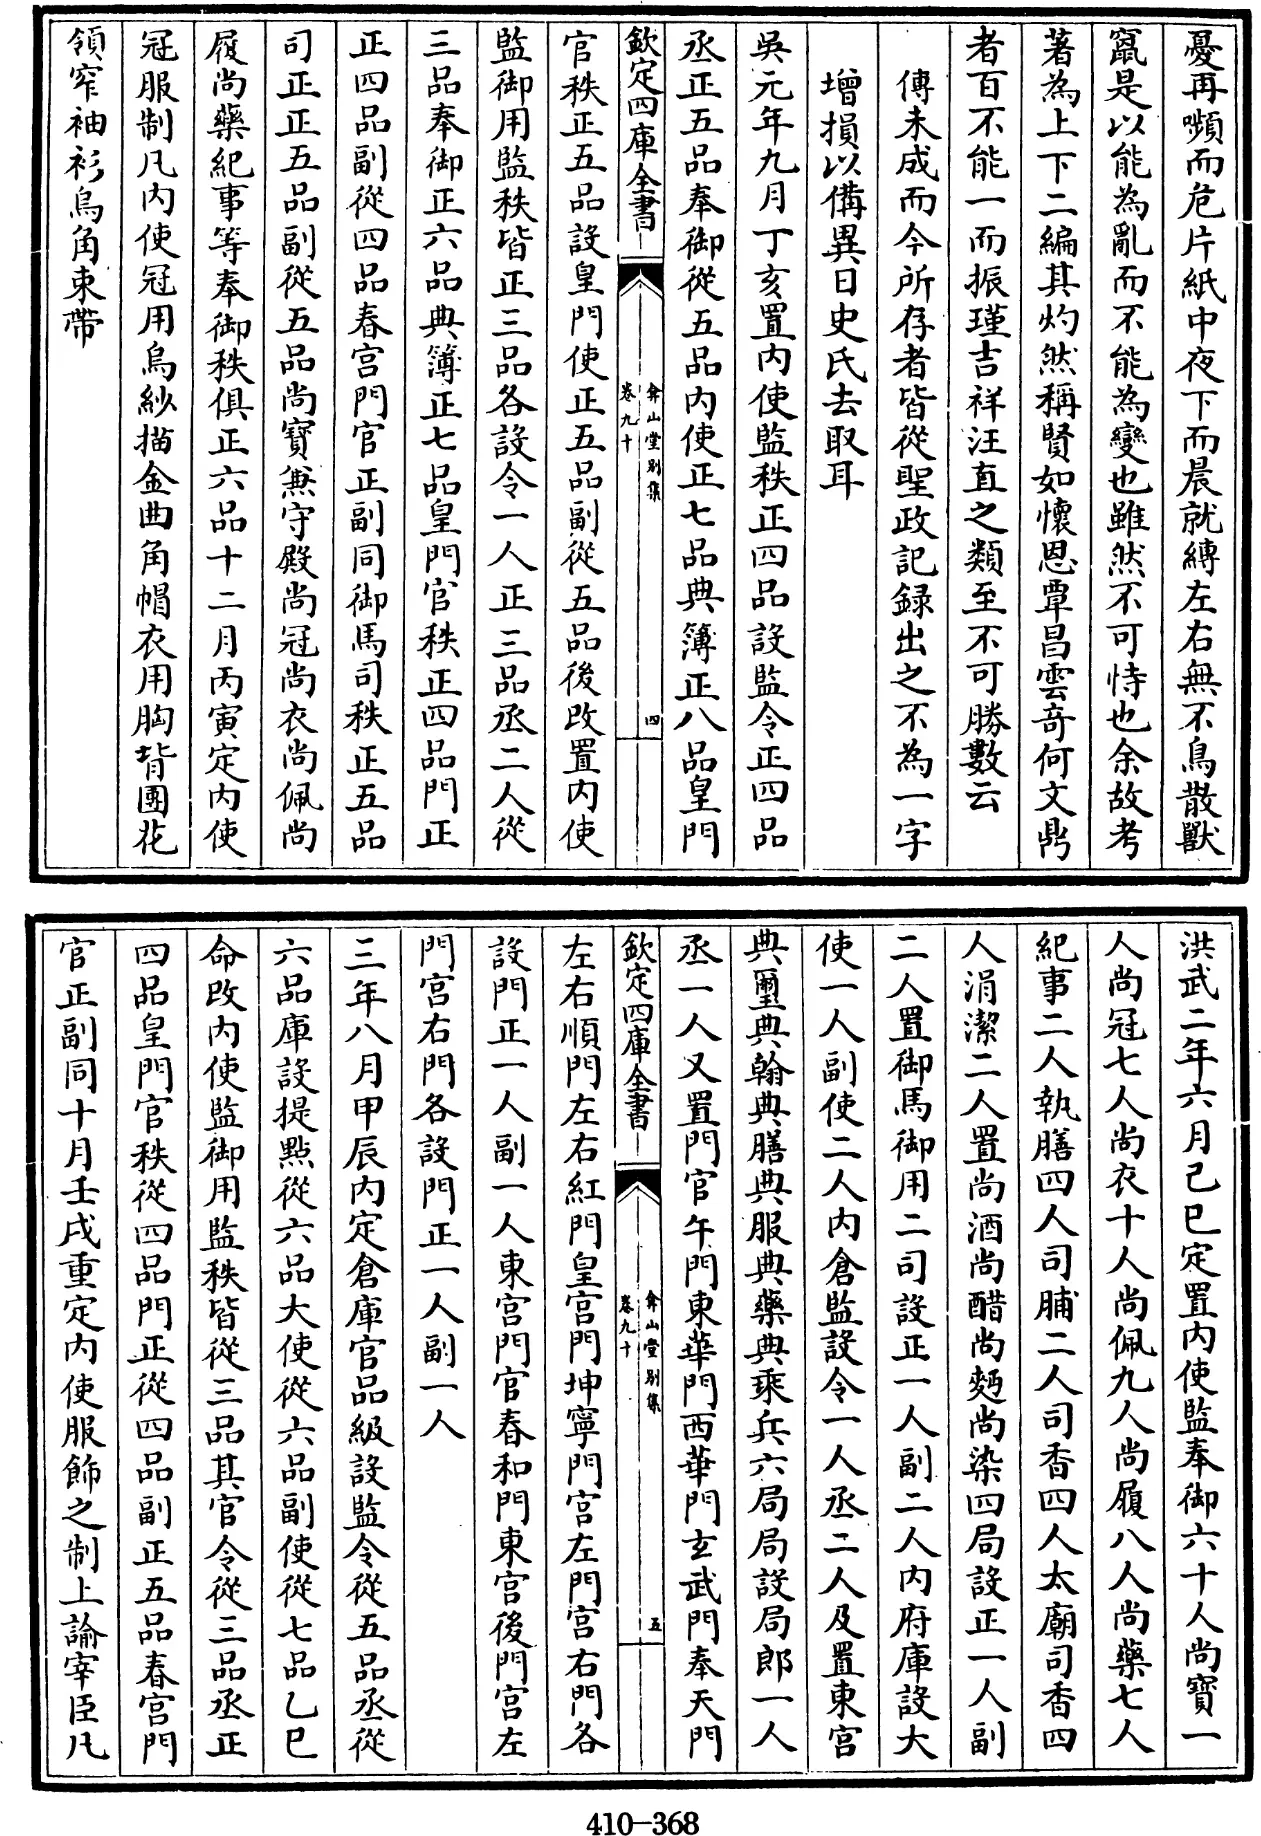 憂再嚬而危片紙中夜下而晨就縛左右無不鳥散獸
竄是以能為亂而不能為變也雖然不可恃也余故考
著為上下二編其灼然稱賢如懷恩覃昌雲奇何文鼎
者百不能一而振瑾吉祥汪直之類至不可勝數云
傳未成而今所存者皆從聖政記録出之不為一字
增損以備異日史氏去取耳
吳元年九月丁亥置内使監秩正四品設監令正四品
丞正五品奉御從五品内使正七品典簿正八品皇門
欽定四庫全書
弇山堂别集
卷九十
四
官秩正五品設皇門使正五品副從五品後改置内使
監御用監秩皆正三品各設令一人正三品丞二人從
三品奉御正六品典簿正七品皇門官秩正四品門正
正四品副從四品春宫門官正副同御馬司秩正五品
司正正五品副從五品尚寶兼守殿尚冠尚衣尚佩尚
履尚藥紀事等奉御秩俱正六品十二月丙寅定内使
冠服制凡内使冠用烏紗描金曲角帽衣用胸背團花
領窄袖衫烏角束帶
洪武二年六月己巳定置内使監奉御六十人尚寶一
人尚冠七人尚衣十人尚佩九人尚履八人尚藥七人
紀事二人執膳四人司脯二人司香四人太廟司香四
人涓潔二人置尚酒尚醋尚麪尚染四局設正一人副
二人置御馬御用二司設正一人副二人内府庫設大
使一人副使二人内倉監設令一人丞二人及置東宫
典璽典翰典膳典服典藥典乘兵六局局設局郎一人
丞一人又置門官午門東華門西華門玄武門奉天門
欽定四庫全書
弇山堂别集
卷九十
五
左右順門左右紅門皇宫門坤寧門宫左門宫右門各
設門正一人副一人東宫門官春和門東宫後門宫左
門宫右門各設門正一人副一人
三年八月甲辰内定倉庫官品級設監令從五品丞從
六品庫設提點從六品大使從六品副使從七品乙巳
命改内使監御用監秩皆從三品其官令從三品丞正
四品皇門官秩從四品門正從四品副正五品春宫門
官正副同十月壬戌重定内使服飾之制上諭宰臣凡
410-368